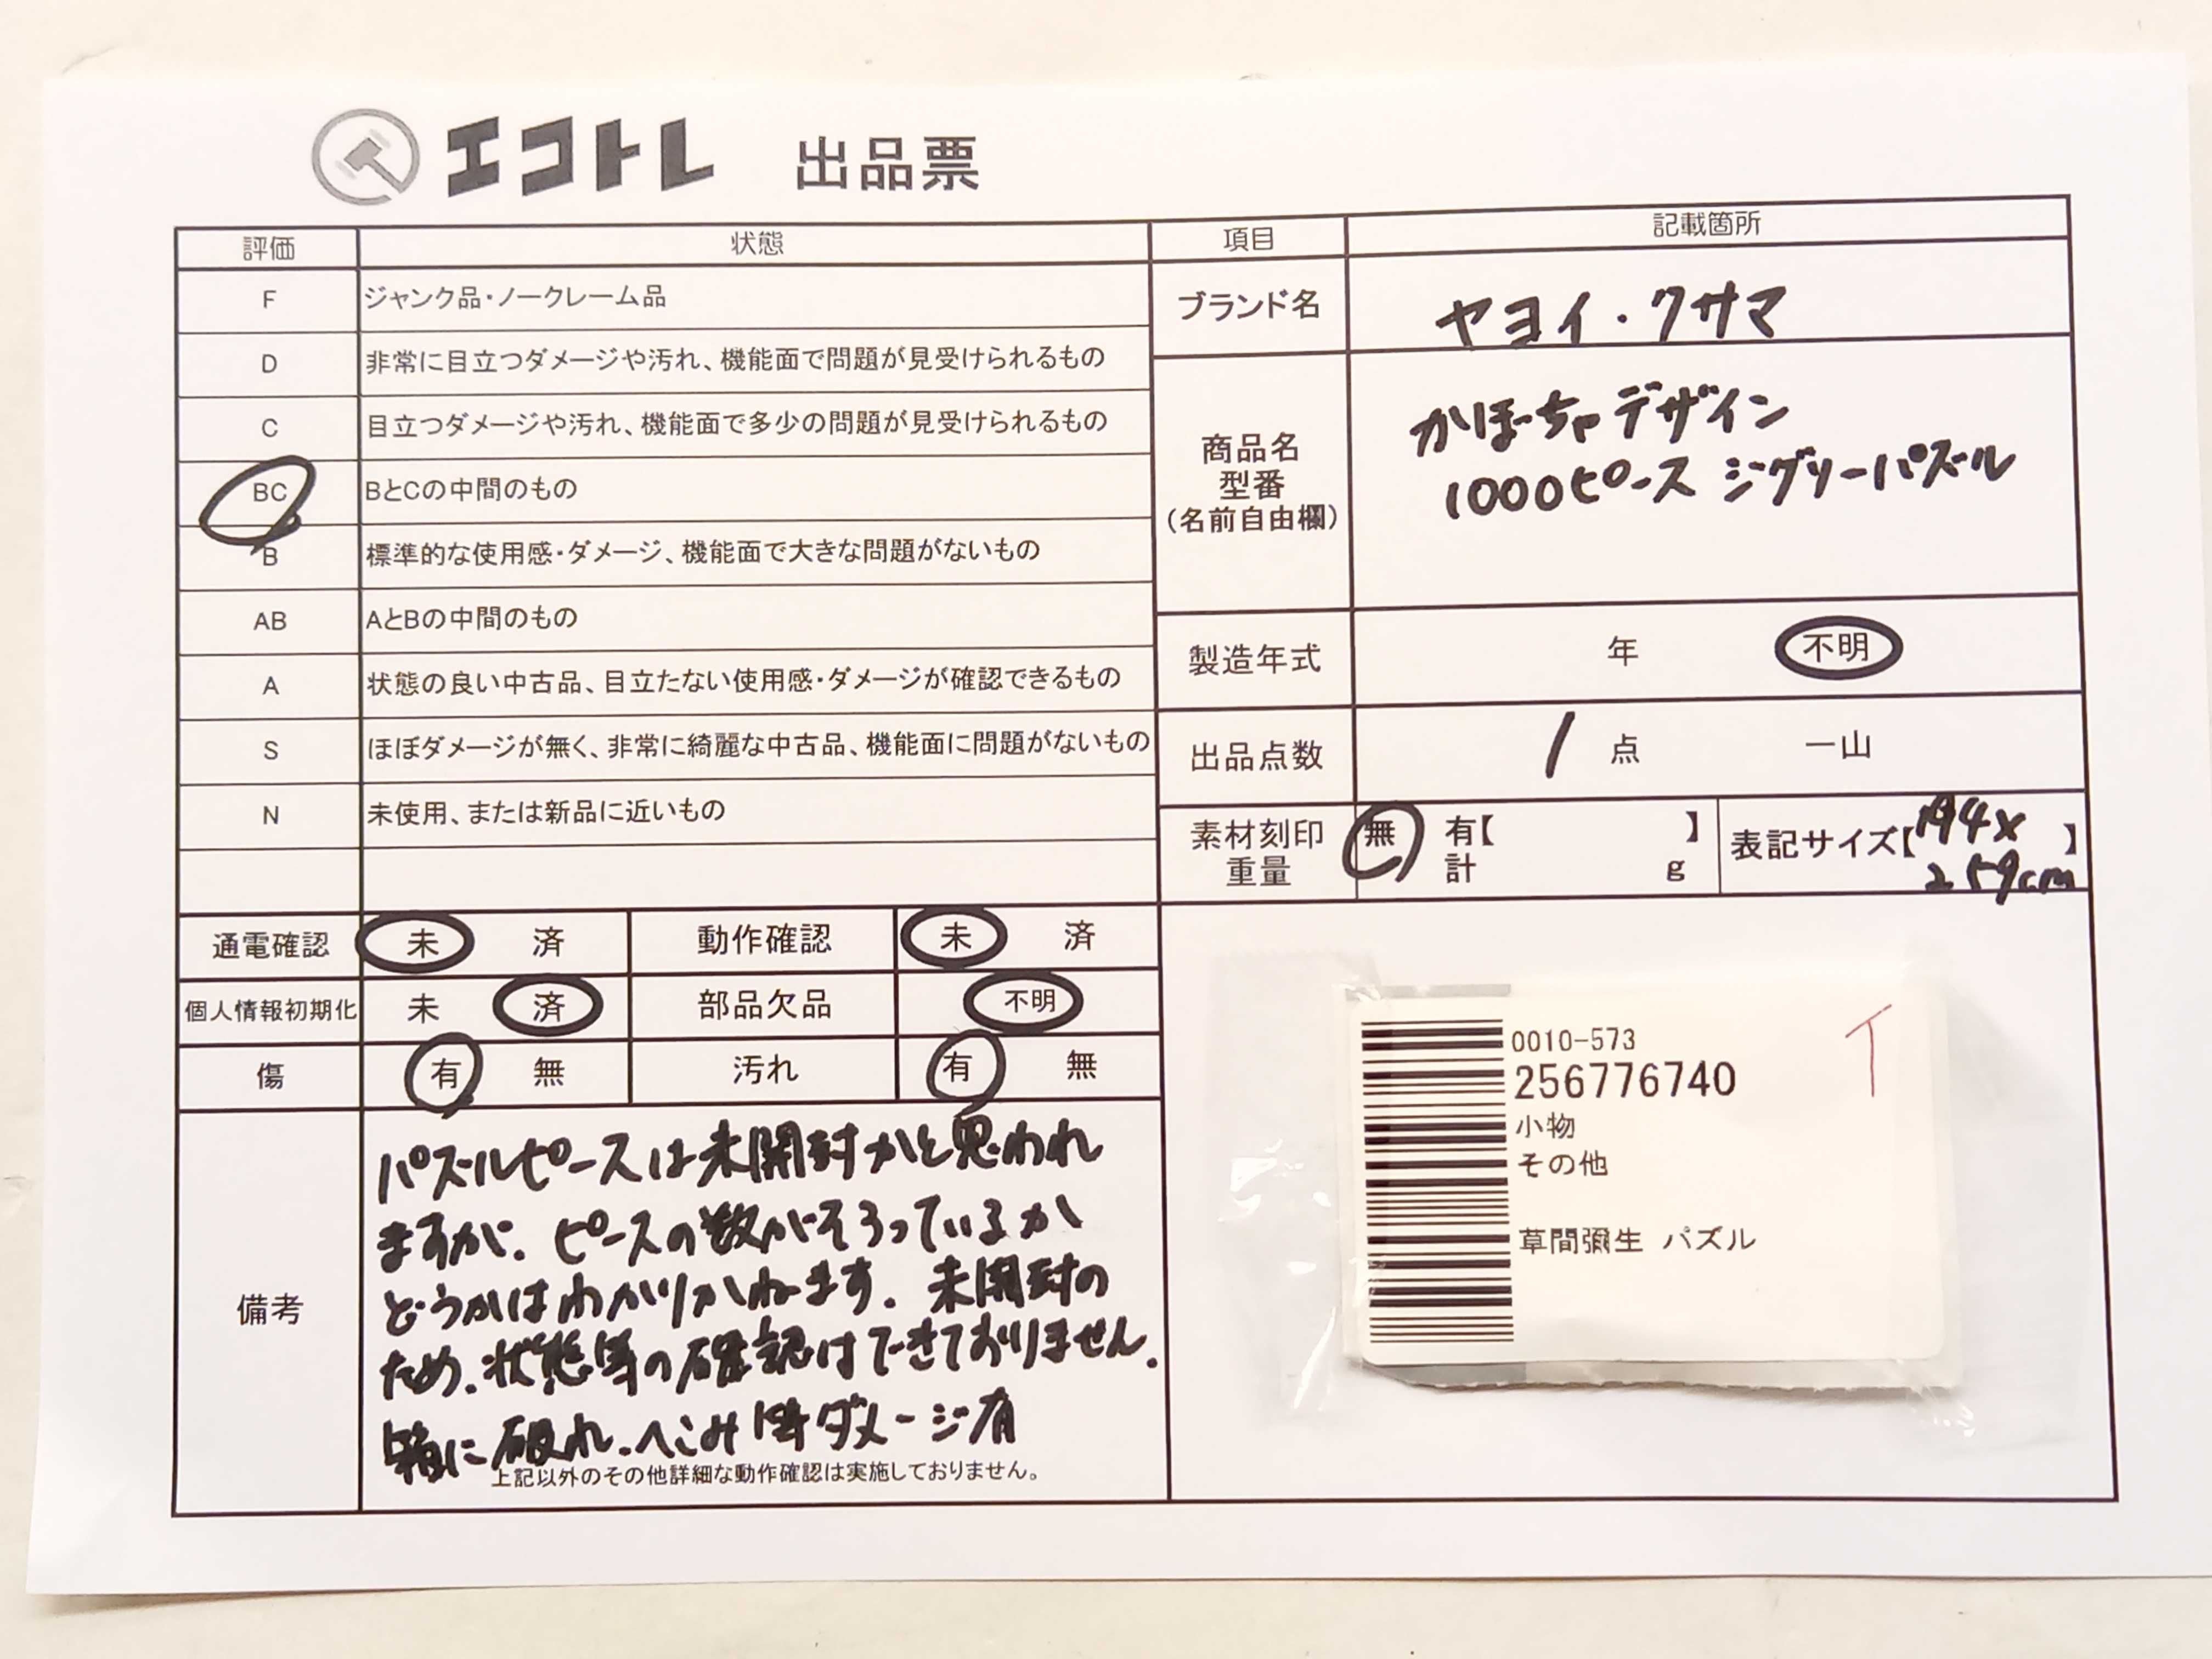 エコトレ 出品票
評価 状態
F ジャンク品・ノークレーム品
D 非常に目立つダメージや汚れ、機能面で問題が見受けられるもの
C 目立つダメージや汚れ、機能面で多少の問題が見受けられるもの
BC BとCの中間のもの
B 標準的な使用感・ダメージ、機能面で大きな問題がないもの
AB AとBの中間のもの
A 状態の良い中古品、目立たない使用感・ダメージが確認できるもの
S ほぼダメージが無く、非常に綺麗な中古品、機能面に問題がないもの
N 未使用、または新品に近いもの
通電確認 未 済 動作確認 未 済
個人情報初期化 未 済 部品欠品 不明
傷 有 無 汚れ 有 無
備考
パズルピースは未開封かと思われ
ますが、ピースの数がそろっているか
どうかはわかりかねます。未開封の
ため、状態等の確認はできておりません。
箱に破れ、へこみ等ダメージ有
上記以外のその他詳細な動作確認は実施しておりません。
項目 記載箇所
ブランド名 ヤヨイ・クサマ
商品名
型番
(名前自由欄)
かぼーちゃデザイン
1000ピース ジグソーパズル
製造年式 年 不明
出品点数 1 点 一山
素材刻印 無 有【 】
重量 計 g
表記サイズ【194×
259cm】
0010-573
256776740
小物
その他
草間彌生 パズル
T